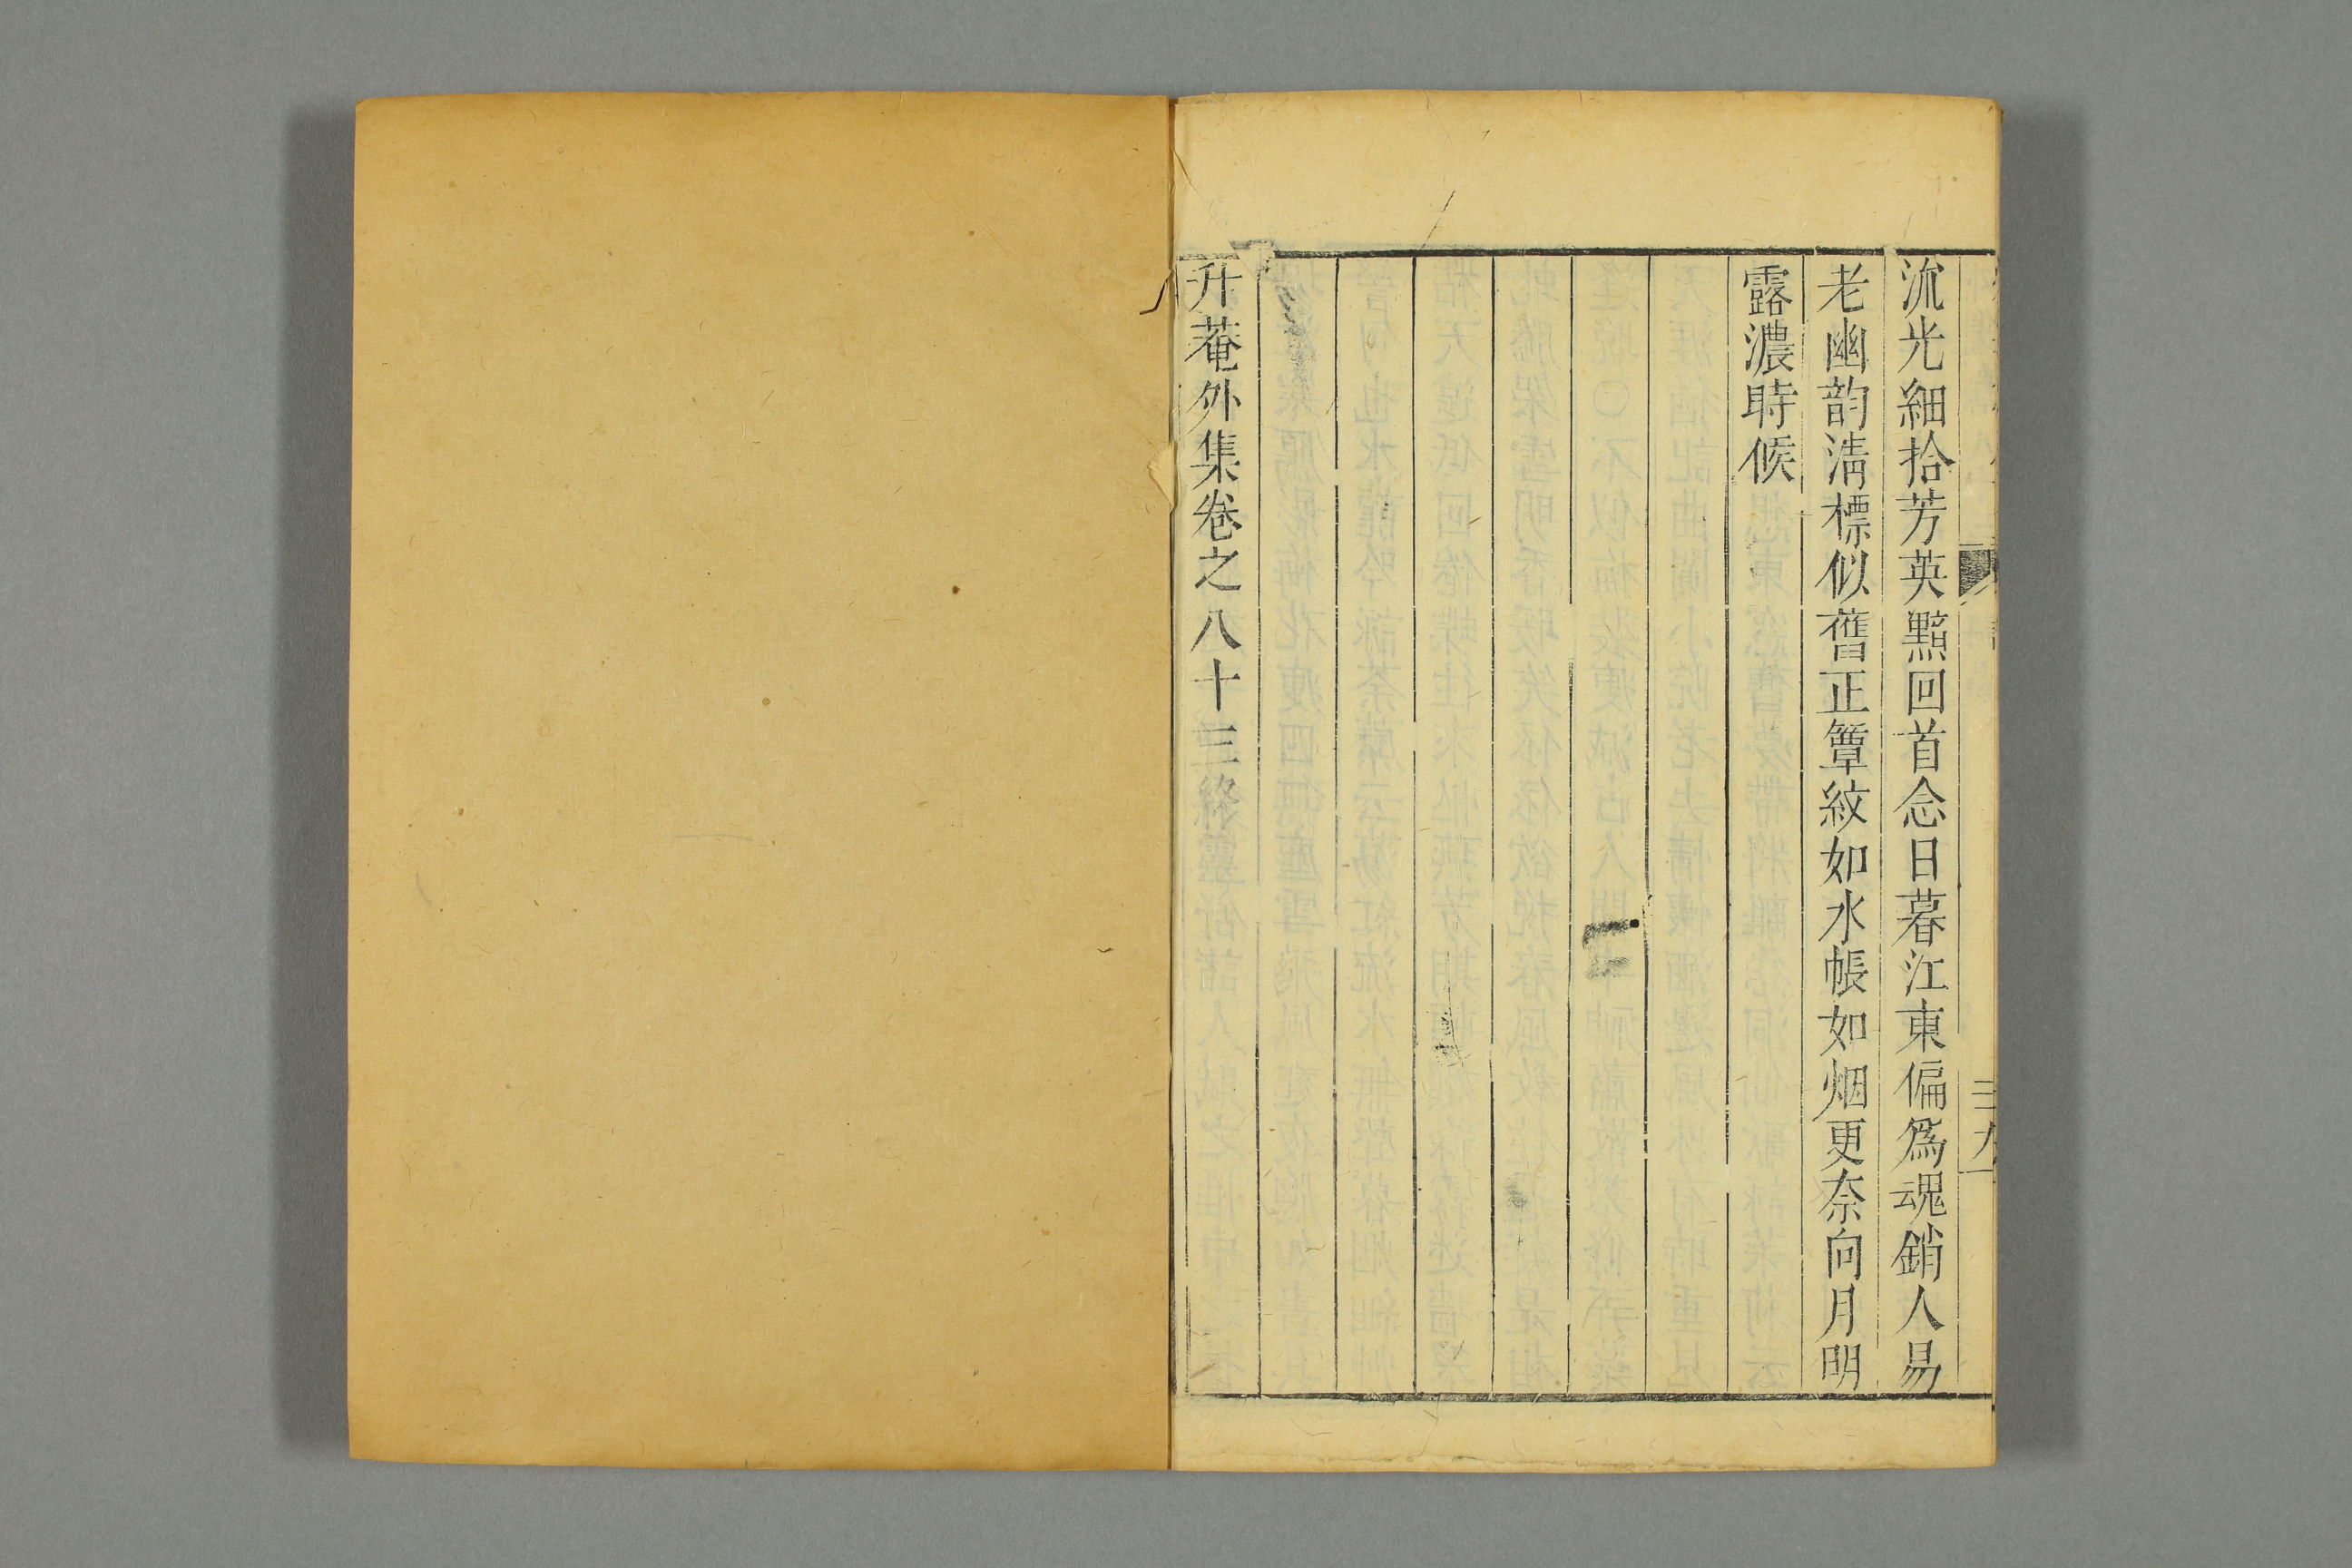 流光細拾芳英黠回首念日暮江東偏爲魂銷人易
老幽韵淸標似舊正簟紋如水帳如烟更奈向月明
露濃時候
升菴外集卷之八十三終
三九